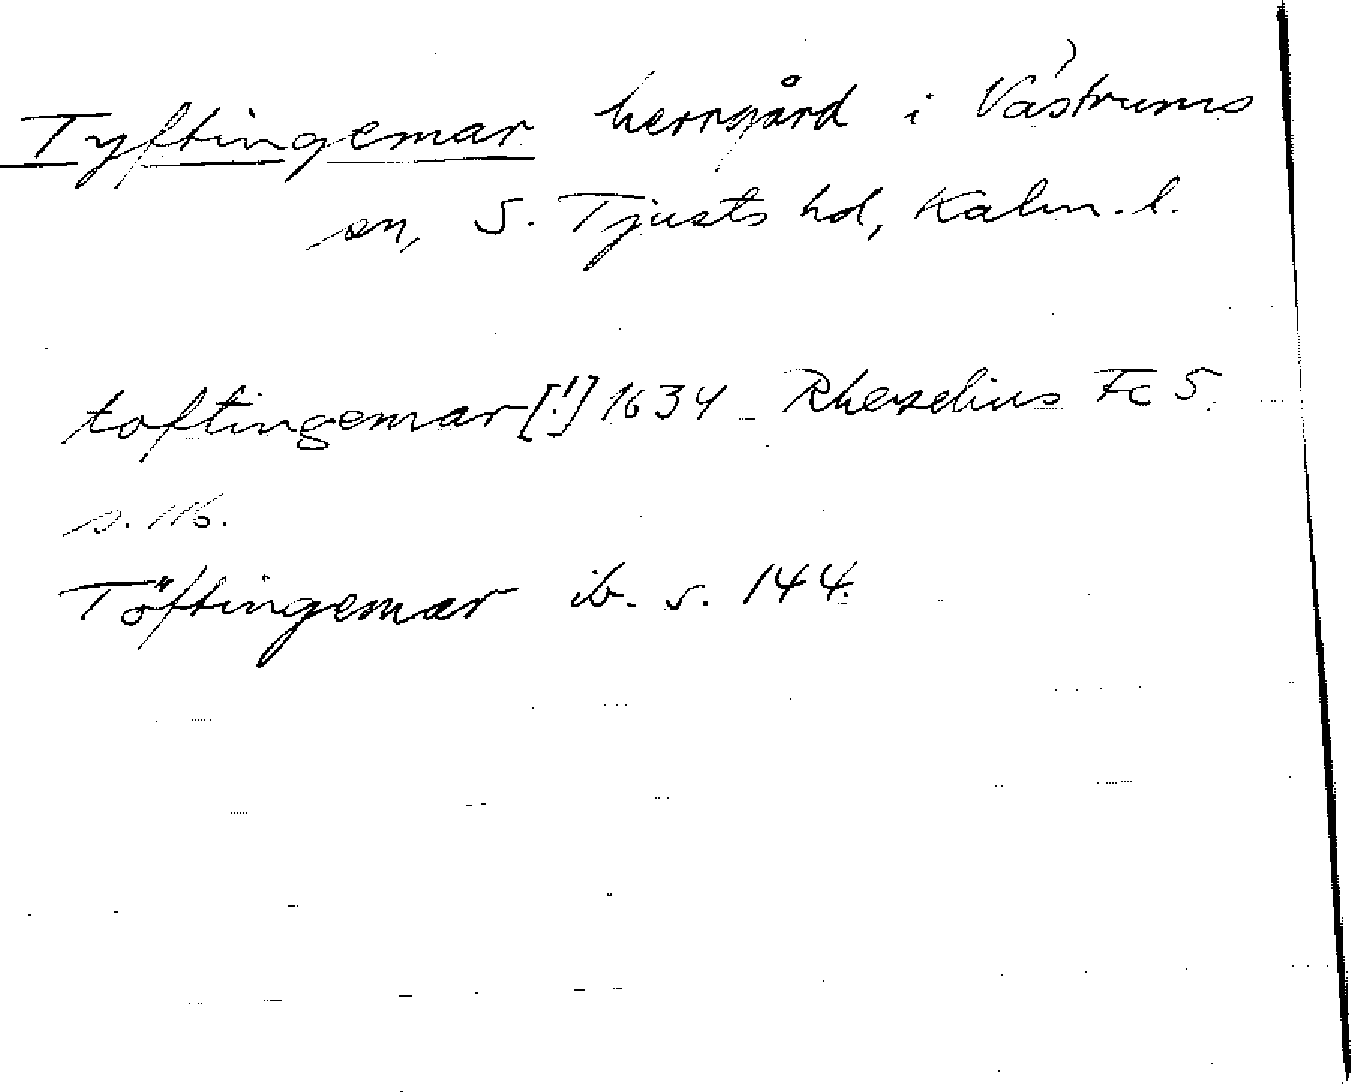 Tyftingemar herrgård i Västrums
sn, S. Tjusts hd, Kalm. l.
toftingemar [!] 1634 Rhezelius Fc 5.
s. 116.
Töftingemar ib. s. 144.